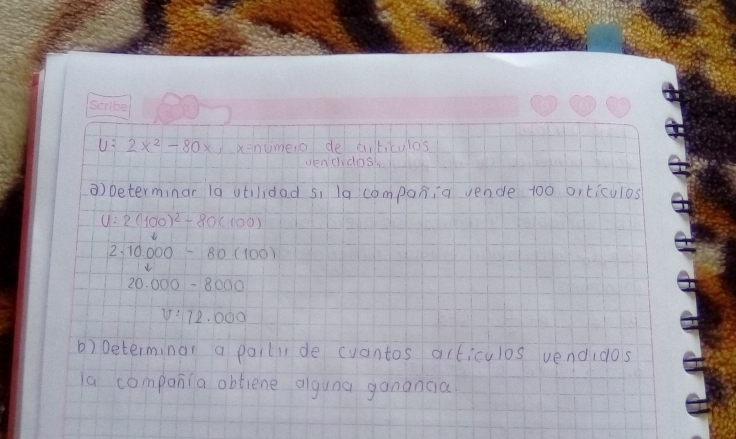 Scribe
U: 2x² - 80x, x=numero de articulos
vendidos.
a) Determinar la utilidad si la compañia vende 100 articulos
U: 2(100)² - 80(100)
↓
2·10.000 - 80(100)
↓
20.000 - 8000
U: 12.000
b) Determinar a partir de cuantos articulos vendidos
la compañia obtiene alguna ganancia.